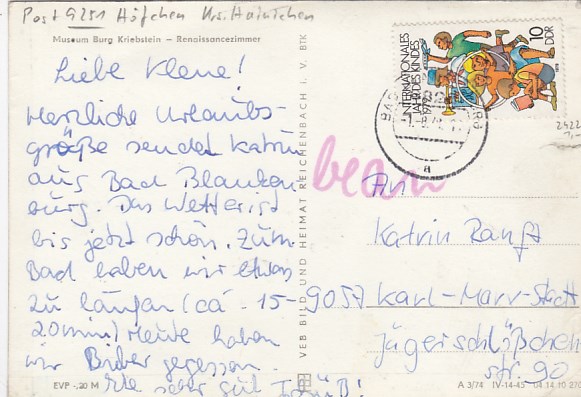 Post 9251 Höfchen Krs. Hainichen
Museum Burg Kriebstein — Renaissancezimmer
Liebe Klene!
Herzliche Urlaubs-
grüße sendet Katrin
aus Bad Blanken
burg. Das Wetter ist
bis jetzt schön. Zum
Bad haben wir etwas
zu laufen (ca. 15-
20 min) Heute haben
wir Biber gegessen.
sehr gut
EVP -,20 M
VEB BILD UND HEIMAT REICHENBACH I. V. BTK
INTERNATIONALES
JAHR DES KINDES
1979
10
DDR
a
2422
beam
An
Katrin Ranft
9057 Karl-Marx-Stadt
Jägerschlößchen
str. 90
A 3/74 IV-14-45 04 14 10 270